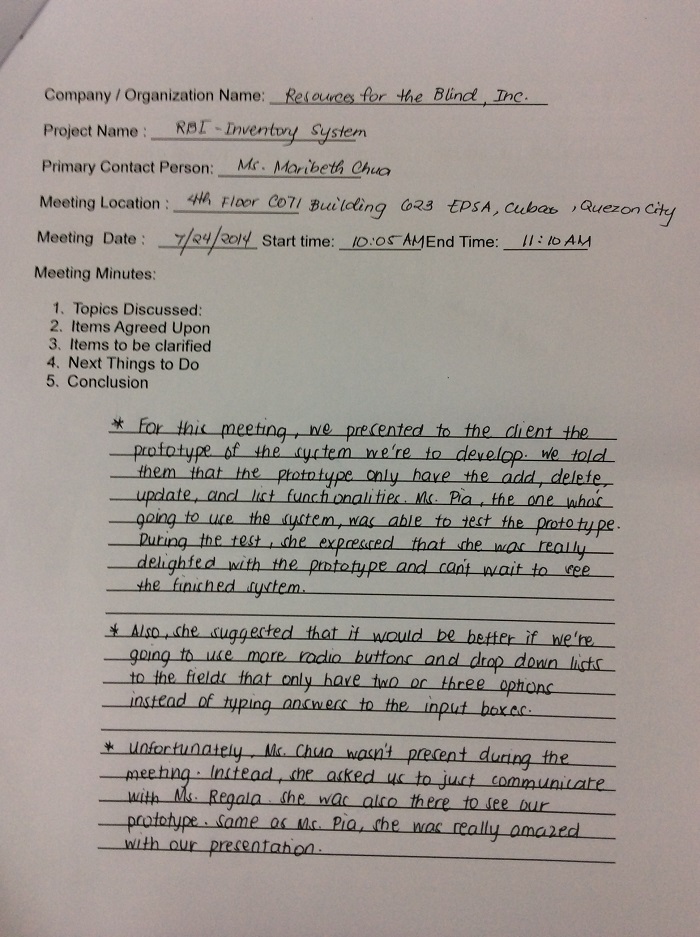 Company / Organization Name: Resources for the Blind, Inc.
Project Name : RBI - Inventory System
Primary Contact Person: Ms. Maribeth Chua
Meeting Location : 4th Floor COTI Building 623 EDSA, Cubao , Quezon City
Meeting Date : 7/24/2014 Start time: 10:05 AM End Time: 11:10 AM
Meeting Minutes:
1. Topics Discussed:
2. Items Agreed Upon
3. Items to be clarified
4. Next Things to Do
5. Conclusion
* For this meeting, we presented to the client the
prototype of the system we're to develop. We told
them that the prototype only have the add, delete,
update, and list functionalities. Ms. Pia, the one who's
going to use the system, was able to test the prototype.
During the test, she expressed that she was really
delighted with the prototype and can't wait to see
the finished system.
* Also, she suggested that it would be better if we're
going to use more radio buttons and drop down lists
to the fields that only have two or three options
instead of typing answers to the input boxes.
* Unfortunately, Ms. Chua wasn't present during the
meeting. Instead, she asked us to just communicate
with Ms. Regala. She was also there to see our
prototype. Same as Ms. Pia, she was really amazed
with our presentation.